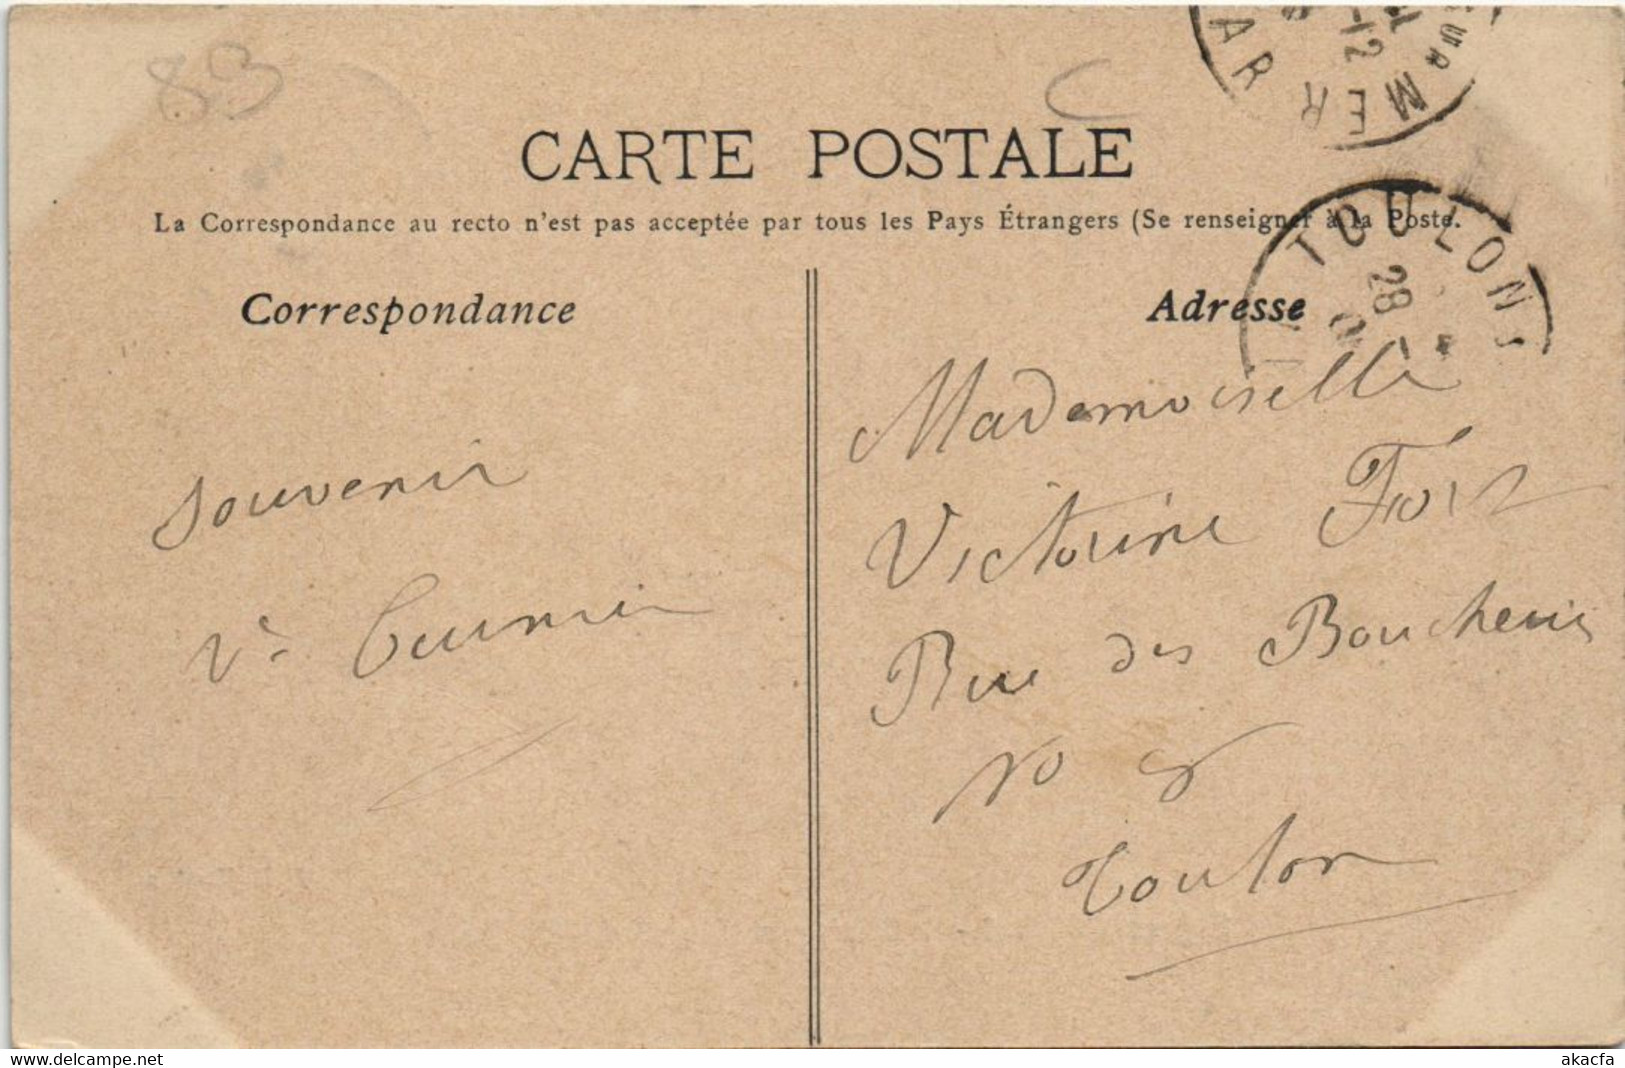 83
MER
VAR
12
CARTE POSTALE
La Correspondance au recto n'est pas acceptée par tous les Pays Étrangers (Se renseigner à la Poste.
TOULON
28
Correspondance
Adresse
Souvenir
Mademoiselle
Victorine Fort
Rue des Boucheries
No 8
Toulon
www.delcampe.net
akacfa